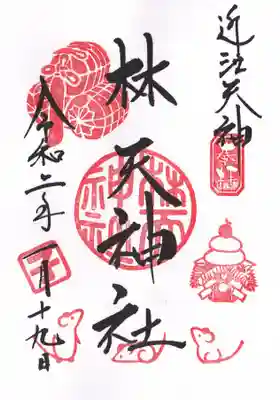 近江天神
林天神社
令和二年一月十九日